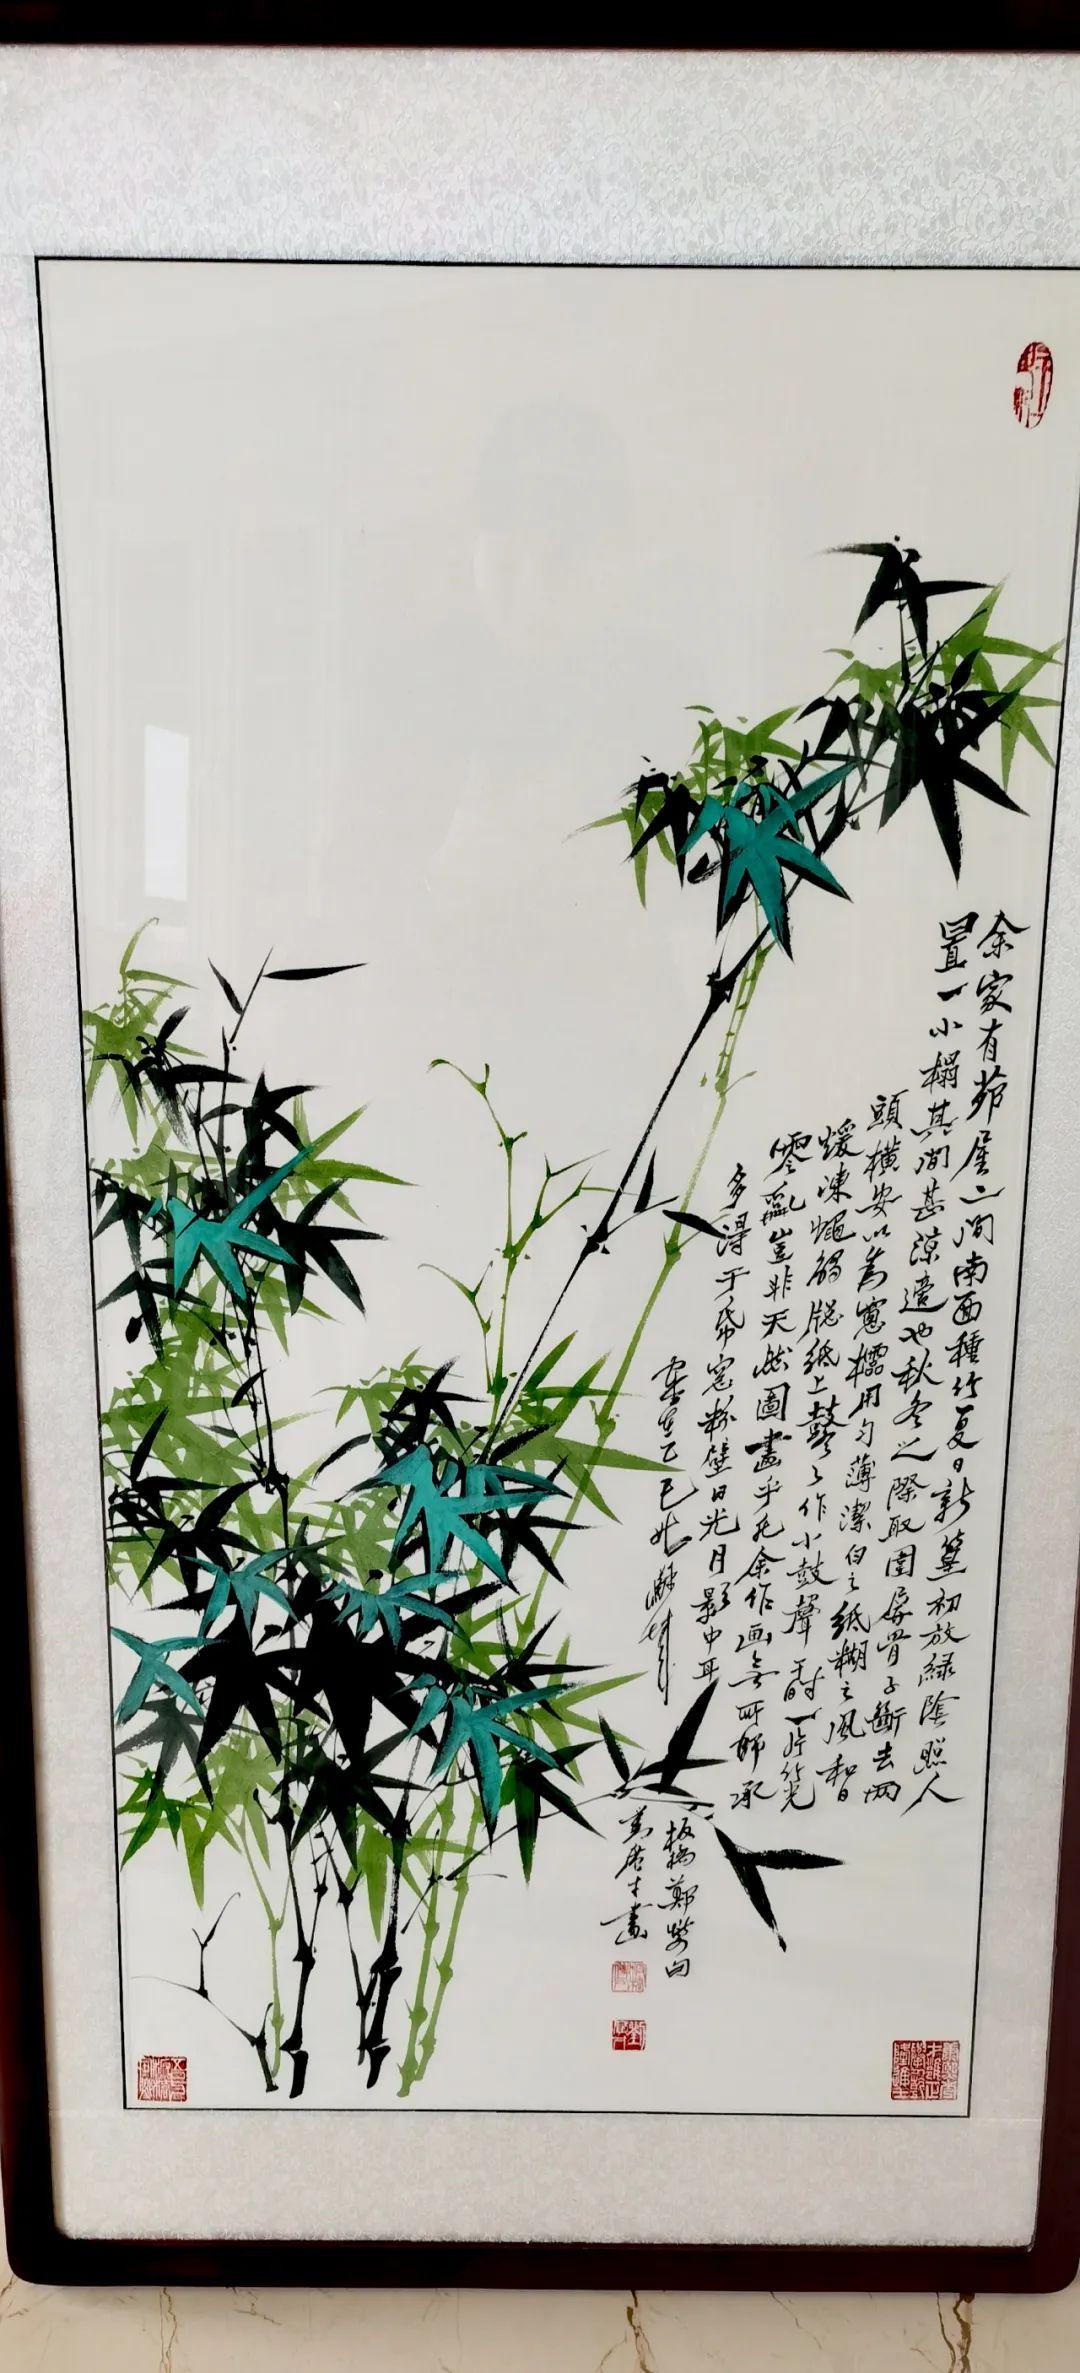 余家有茆屋二间南面種竹夏日新篁初放緑陰照人
置一小榻其间甚凉適也秋冬之際取圍屏骨子斷去两
頭横安以為窓櫺用匀薄潔白之紙糊之風和日
煖凍蠅觸窓紙上鼕々作小鼓聲于時一片竹影
零亂豈非天然圖畫乎凡余作画無所師承
多得于紙窓粉壁日光月影中耳
板橋鄭燮句